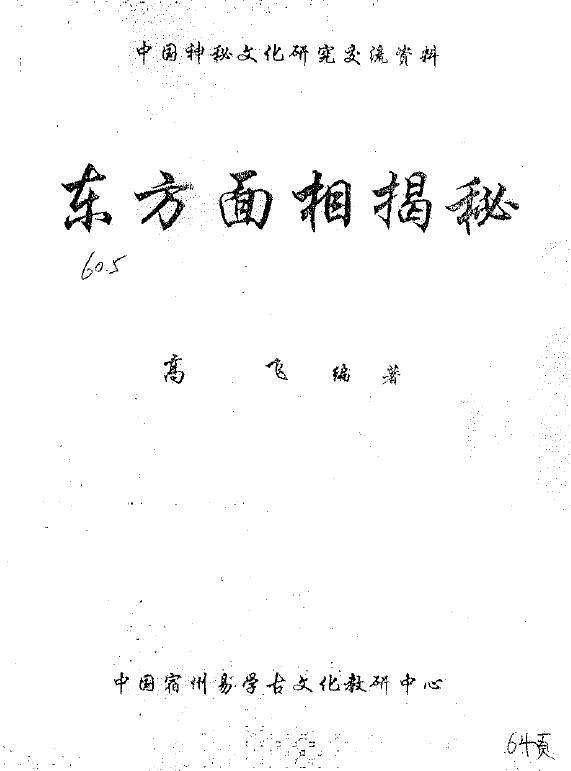 中国神秘文化研究交流资料
东方面相揭秘
60.5
高飞 编著
中国宿州易学古文化教研中心
64页